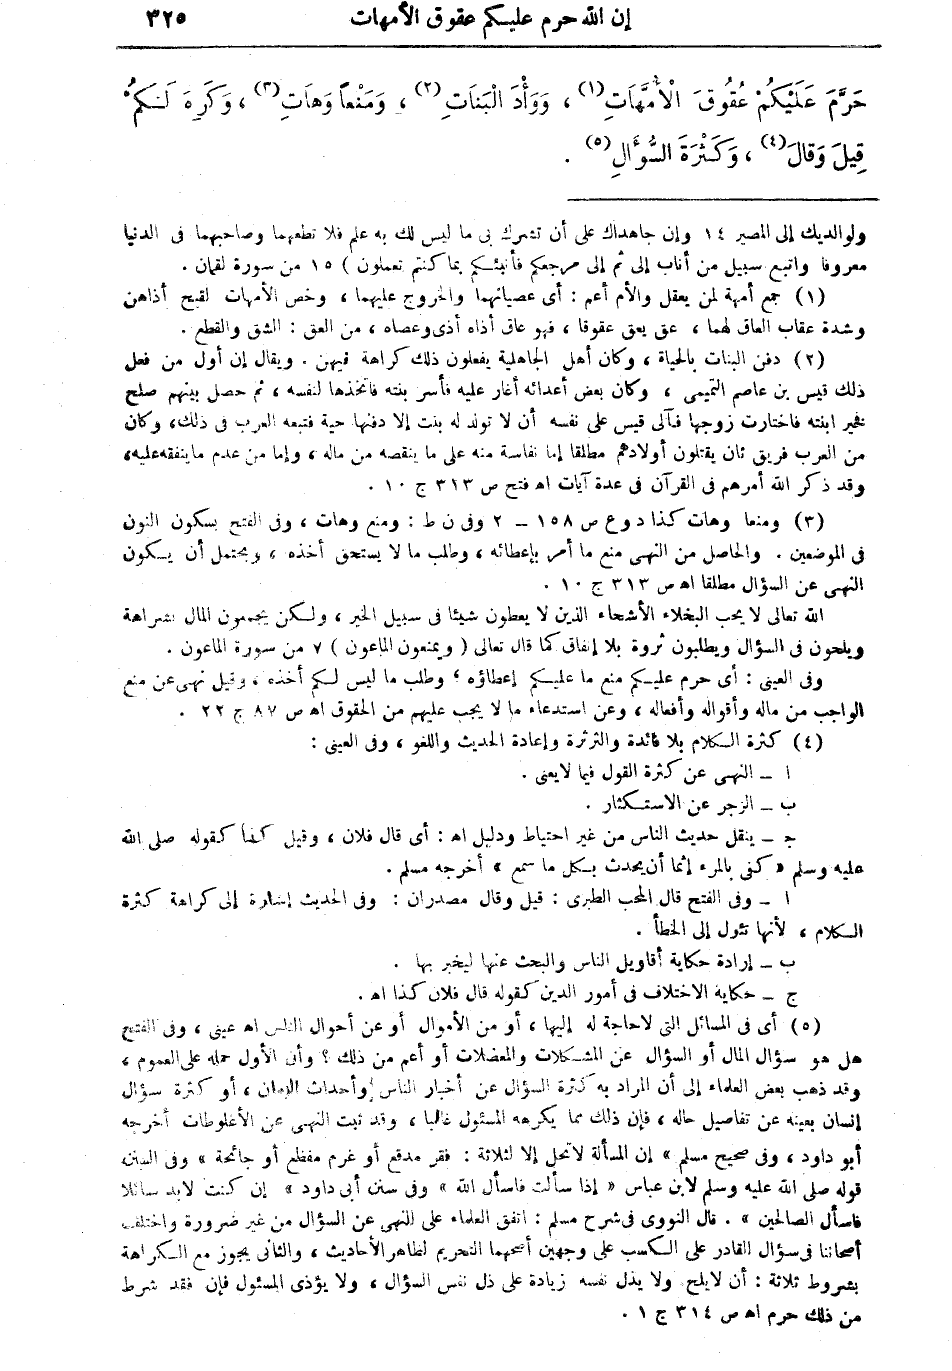 إن الله حرم عليكم عقوق الأمهات ٣٢٥
حَرَّمَ عَلَيْكُمْ عُقُوقَ الْأُمَّهَاتِ(١) ، وَوَأْدَ الْبَنَاتِ(٢) ، وَمَنْعاً وَهَاتِ(٣) ، وَكَرِهَ لَكُمْ
قِيلَ وَقَالَ(٤) ، وَكَثْرَةَ السُّؤَالِ(٥) .
ولوالديك إلى المصير ١٤ وإن جاهداك على أن تشرك بى ما ليس لك به علم فلا تطعهما وصاحبهما فى الدنيا
معروفا واتبع سبيل من أناب إلى ثم إلى مرجعكم فأنبئكم بما كنتم تعملون ) ١٥ من سورة لقمان .
(١) جمع أمهة لمن يعقل والأم أعم : أى عصيانهما والخروج عليهما ، وخص الأمهات لقبح أذاهن
وشدة عقاب العاق لهما ، عق يعق عقوقا ، فهو عاق أذاه أذى وعصاه ، من العق : الشق والقطع .
(٢) دفن البنات بالحياة ، وكان أهل الجاهلية يفعلون ذلك كراهة فيهن . ويقال إن أول من فعل
ذلك قيس بن عاصم التميمى ، وكان بعض أعدائه أغار عليه فأسر بنته فاتخذها لنفسه ، ثم حصل بينهم صلح
فخير ابنته فاختارت زوجها فآلى قيس على نفسه أن لا تولد له بنت إلا دفنها حية فتبعه العرب فى ذلك، وكان
من العرب فريق ثان يقتلون أولادهم مطلقا إما نفاسة منه على ما ينقصه من ماله ، وإما من عدم ما ينفقه عليه،
وقد ذكر الله أمرهم فى القرآن فى عدة آيات اه فتح ص ٣١٣ ج ١٠ .
(٣) ومنعا وهات كذا د وع ص ١٥٨ – ٢ وفى ن ط : ومنع وهات ، وفى الفتح بسكون النون
فى الموضعين . والحاصل من النهى منع ما أمر بإعطائه ، وطلب ما لا يستحق أخذه ، ويحتمل أن يكون
النهى عن السؤال مطلقا اه ص ٣١٣ ج ١٠ .
الله تعالى لا يحب البخلاء الأشحاء الذين لا يعطون شيئا فى سبيل الخير ، ولكن يجمعون المال بشراهة
ويلحون فى السؤال ويطلبون ثروة بلا إنفاق كما قال تعالى ( ويمنعون الماعون ) ٧ من سورة الماعون .
وفى العينى : أى حرم عليكم منع ما عليكم إعطاؤه ؛ وطلب ما ليس لكم أخذه ، وقيل نهى عن منع
الواجب من ماله وأقواله وأفعاله ، وعن استدعاء ما لا يجب عليهم من الحقوق اه ص ٨٧ ج ٢٢ .
(٤) كثرة الكلام بلا فائدة والثرثرة وإعادة الحديث واللغو ، وفى العينى :
ا – النهى عن كثرة القول فيما لا يعنى .
ب – الزجر عن الاستكثار .
ج – ينقل حديث الناس من غير احتياط ودليل اه : أى قال فلان ، وقيل كذا كقوله صلى الله
عليه وسلم « كفى بالمرء إثما أن يحدث بكل ما سمع » أخرجه مسلم .
ا – وفى الفتح قال المحب الطبرى : قيل وقال مصدران : وفى الحديث إشارة إلى كراهة كثرة
الكلام ، لأنها تئول إلى الخطأ .
ب – إرادة حكاية أقاويل الناس والبحث عنها ليخبر بها .
ج – حكاية الاختلاف فى أمور الدين كقوله قال فلان كذا اه .
(٥) أى فى المسائل التى لا حاجة له إليها ، أو من الأموال أو عن أحوال الناس اه عينى ، وفى الفتح
هل هو سؤال المال أو السؤال عن المشكلات والمعضلات أو أعم من ذلك ؟ وأن الأول حمله على العموم ،
وقد ذهب بعض العلماء إلى أن المراد به كثرة السؤال عن أخبار الناس وأحداث الزمان ، أو كثرة سؤال
إنسان بعينه عن تفاصيل حاله ، فإن ذلك مما يكرهه المسئول غالبا ، وقد ثبت النهى عن الأغلوطات أخرجه
أبو داود ، وفى صحيح مسلم » إن المسألة لا تحل إلا لثلاثة : فقر مدقع أو غرم مفظع أو جائحة » وفى السنن
قوله صلى الله عليه وسلم لابن عباس « إذا سألت فاسأل الله » وفى سنن أبى داود » إن كنت لا بد سائلا
فاسأل الصالحين » . قال النووى فى شرح مسلم : اتفق العلماء على النهى عن السؤال من غير ضرورة واختلف
أصحابنا فى سؤال القادر على الكسب على وجهين أصحهما التحريم لظاهر الأحاديث ، والثانى يجوز مع الكراهة
بشروط ثلاثة : أن لا يلح ولا يذل نفسه زيادة على ذل نفس السؤال ، ولا يؤذى المسئول فإن فقد شرط
من ذلك حرم اه ص ٣١٤ ج ١ .